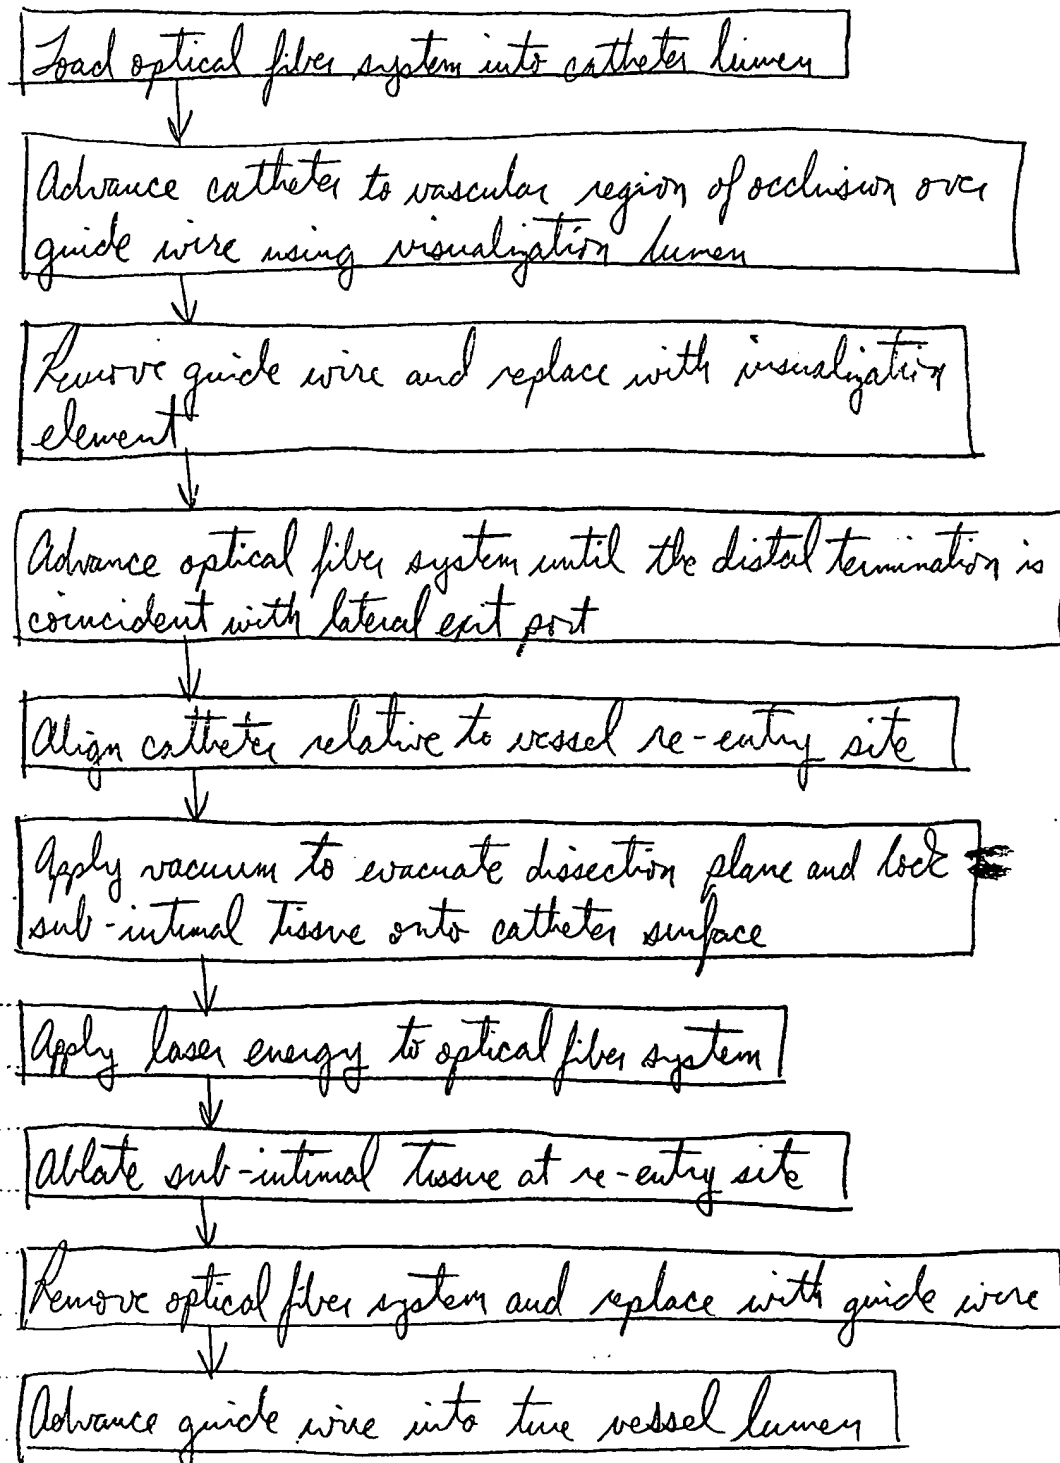 Load optical fiber system into catheter lumen
Advance catheter to vascular region of occlusion over
guide wire using visualization lumen
Remove guide wire and replace with visualization
element
Advance optical fiber system until the distal termination is
coincident with lateral exit port
Align catheter relative to vessel re-entry site
Apply vacuum to evacuate dissection plane and lock
sub-intimal tissue onto catheter surface
Apply laser energy to optical fiber system
Ablate sub-intimal tissue at re-entry site
Remove optical fiber system and replace with guide wire
Advance guide wire into true vessel lumen